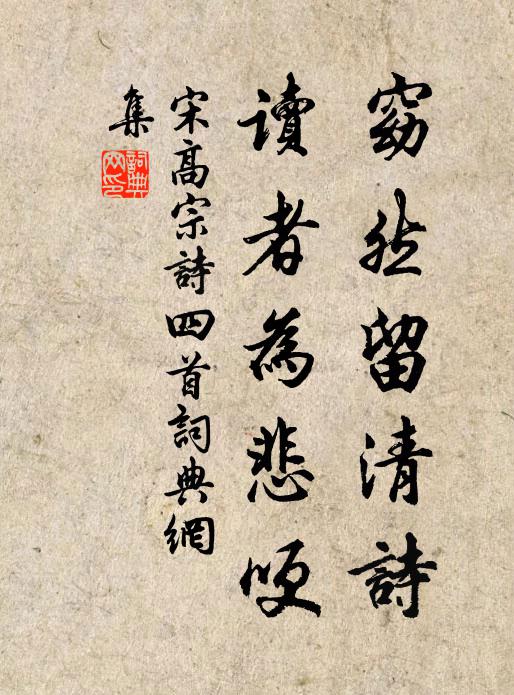 窈然留清詩
讀者為悲哽
宋高宗詩四首詞典網
集
詞典
网印